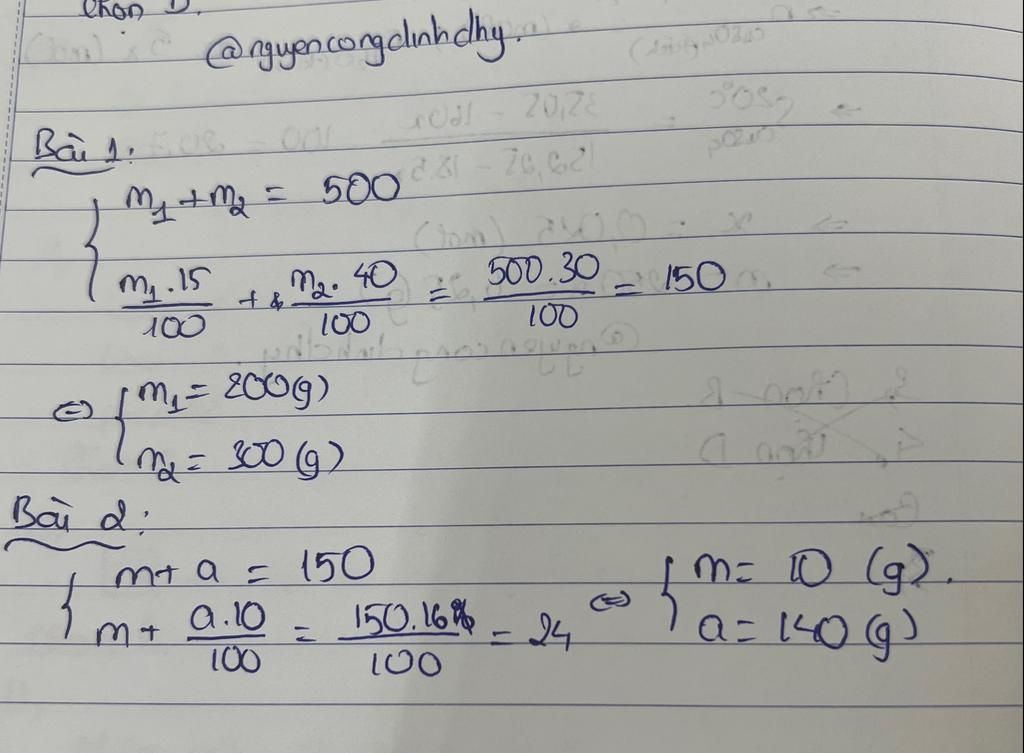 Chọn D.
@nguyencongdinhdhy.
Bài 1:
m₁ + m₂ = 500
m₁.15/100 + m₂.40/100 = 500.30/100 = 150
⇔ { m₁ = 200(g)
m₂ = 300(g)
Bài 2:
{ m + a = 150
m + a.10/100 = 150.16%/100 = 24
⇔ { m = 10 (g).
a = 140 (g)